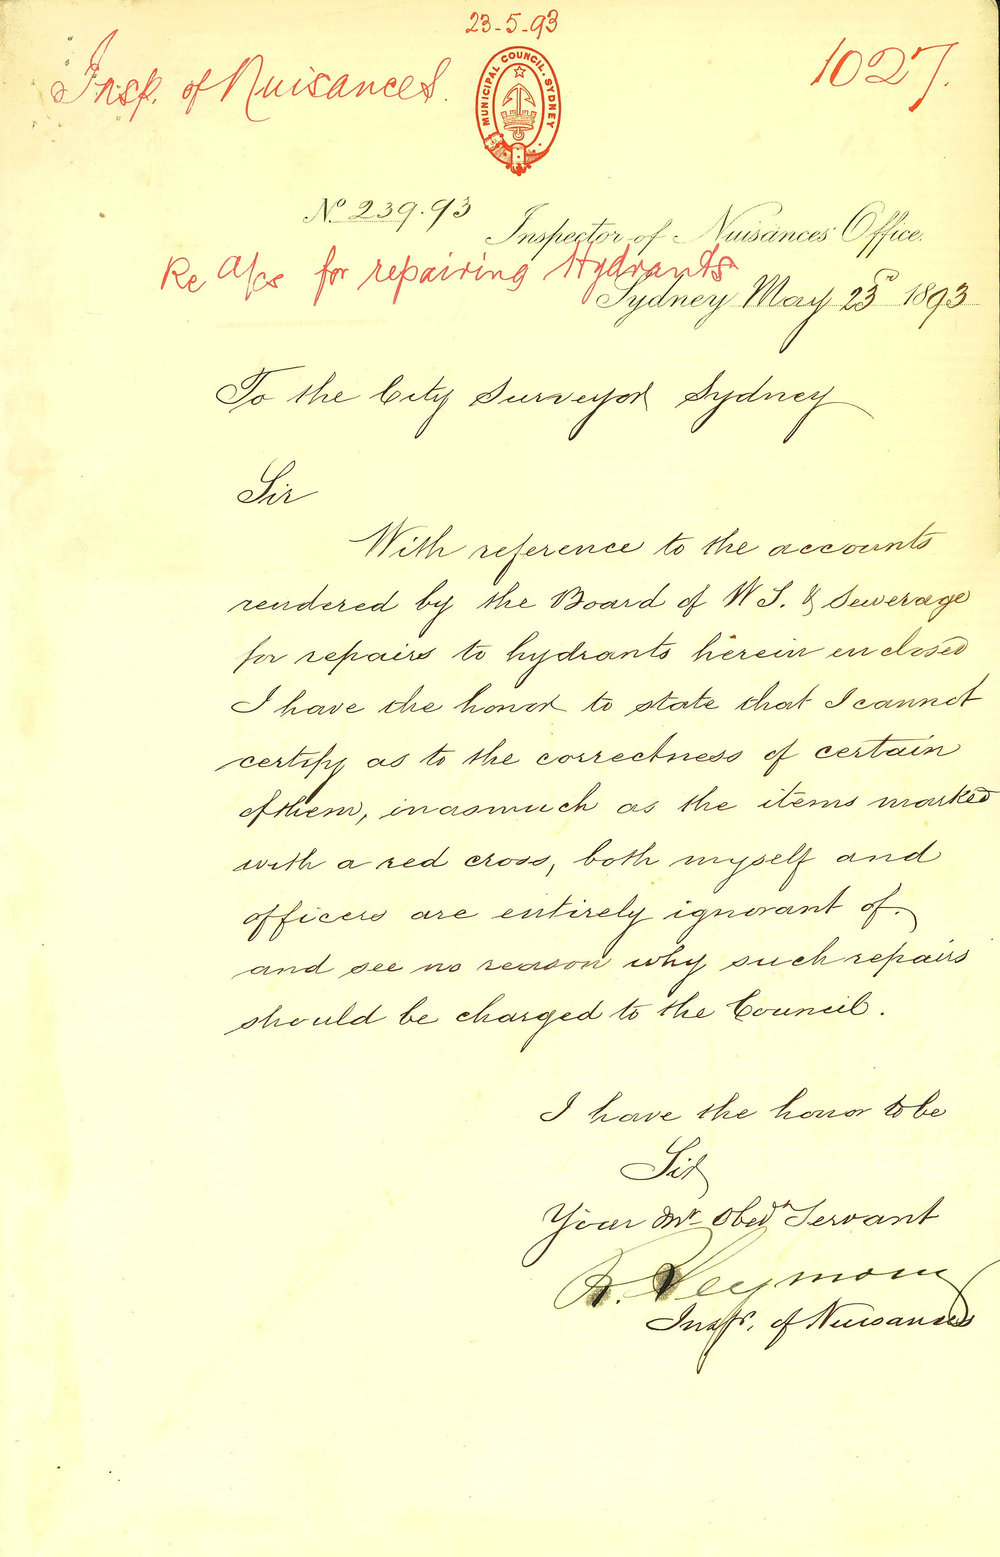 23-5-93
Insp. of Nuisances.
1027.
MUNICIPAL COUNCIL. SYDNEY
No 239.93
Inspector of Nuisances' Office.
Re A/cs for repairing Hydrants
Sydney May 23rd 1893
To the City Surveyor Sydney
Sir
With reference to the accounts
rendered by the Board of W S. & Sewerage
for repairs to hydrants herein enclosed
I have the honor to state that I cannot
certify as to the correctness of certain
of them, inasmuch as the items marked
with a red cross, both myself and
officers are entirely ignorant of.
and see no reason why such repairs
should be charged to the Council.
I have the honor to be
Sir
Your Mt Obedt Servant
R. Seymour
Inspr. of Nuisances